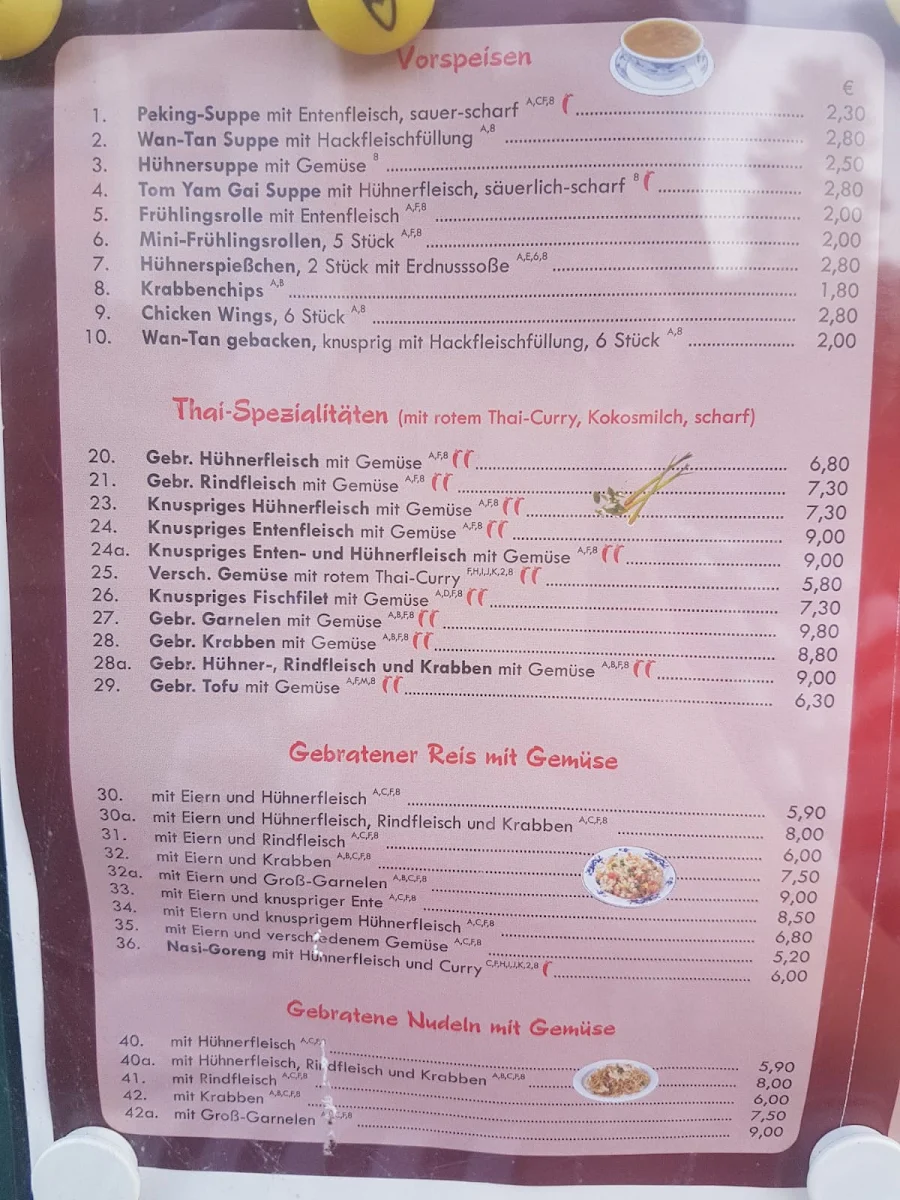 Vorspeisen
€
1. Peking-Suppe mit Entenfleisch, sauer-scharf A,C,F,8 2,30
2. Wan-Tan Suppe mit Hackfleischfüllung A,8 2,80
3. Hühnersuppe mit Gemüse 8 2,50
4. Tom Yam Gai Suppe mit Hühnerfleisch, säuerlich-scharf 8 2,80
5. Frühlingsrolle mit Entenfleisch A,F,8 2,00
6. Mini-Frühlingsrollen, 5 Stück A,F,8 2,00
7. Hühnerspießchen, 2 Stück mit Erdnusssoße A,E,6,8 2,80
8. Krabbenchips A,B 1,80
9. Chicken Wings, 6 Stück A,8 2,80
10. Wan-Tan gebacken, knusprig mit Hackfleischfüllung, 6 Stück A,8 2,00
Thai-Spezialitäten (mit rotem Thai-Curry, Kokosmilch, scharf)
20. Gebr. Hühnerfleisch mit Gemüse A,F,8 6,80
21. Gebr. Rindfleisch mit Gemüse A,F,8 7,30
23. Knuspriges Hühnerfleisch mit Gemüse A,F,8 7,30
24. Knuspriges Entenfleisch mit Gemüse A,F,8 9,00
24a. Knuspriges Enten- und Hühnerfleisch mit Gemüse A,F,8 9,00
25. Versch. Gemüse mit rotem Thai-Curry F,H,I,J,K,2,8 5,80
26. Knuspriges Fischfilet mit Gemüse A,D,F,8 7,30
27. Gebr. Garnelen mit Gemüse A,B,F,8 9,80
28. Gebr. Krabben mit Gemüse A,B,F,8 8,80
28a. Gebr. Hühner-, Rindfleisch und Krabben mit Gemüse A,B,F,8 9,00
29. Gebr. Tofu mit Gemüse A,F,M,8 6,30
Gebratener Reis mit Gemüse
30. mit Eiern und Hühnerfleisch A,C,F,8 5,90
30a. mit Eiern und Hühnerfleisch, Rindfleisch und Krabben A,C,F,8 8,00
31. mit Eiern und Rindfleisch A,C,F,8 6,00
32. mit Eiern und Krabben A,B,C,F,8 7,50
32a. mit Eiern und Groß-Garnelen A,B,C,F,8 9,00
33. mit Eiern und knuspriger Ente A,C,F,8 8,50
34. mit Eiern und knusprigem Hühnerfleisch A,C,F,8 6,80
35. mit Eiern und verschiedenem Gemüse A,C,F,8 5,20
36. Nasi-Goreng mit Hühnerfleisch und Curry C,F,H,I,J,K,2,8 6,00
Gebratene Nudeln mit Gemüse
40. mit Hühnerfleisch 5,90
40a. mit Hühnerfleisch, Rindfleisch und Krabben A,B,C,F,8 8,00
41. mit Rindfleisch A,C,F,8 6,00
42. mit Krabben A,B,C,F,8 7,50
42a. mit Groß-Garnelen 9,00